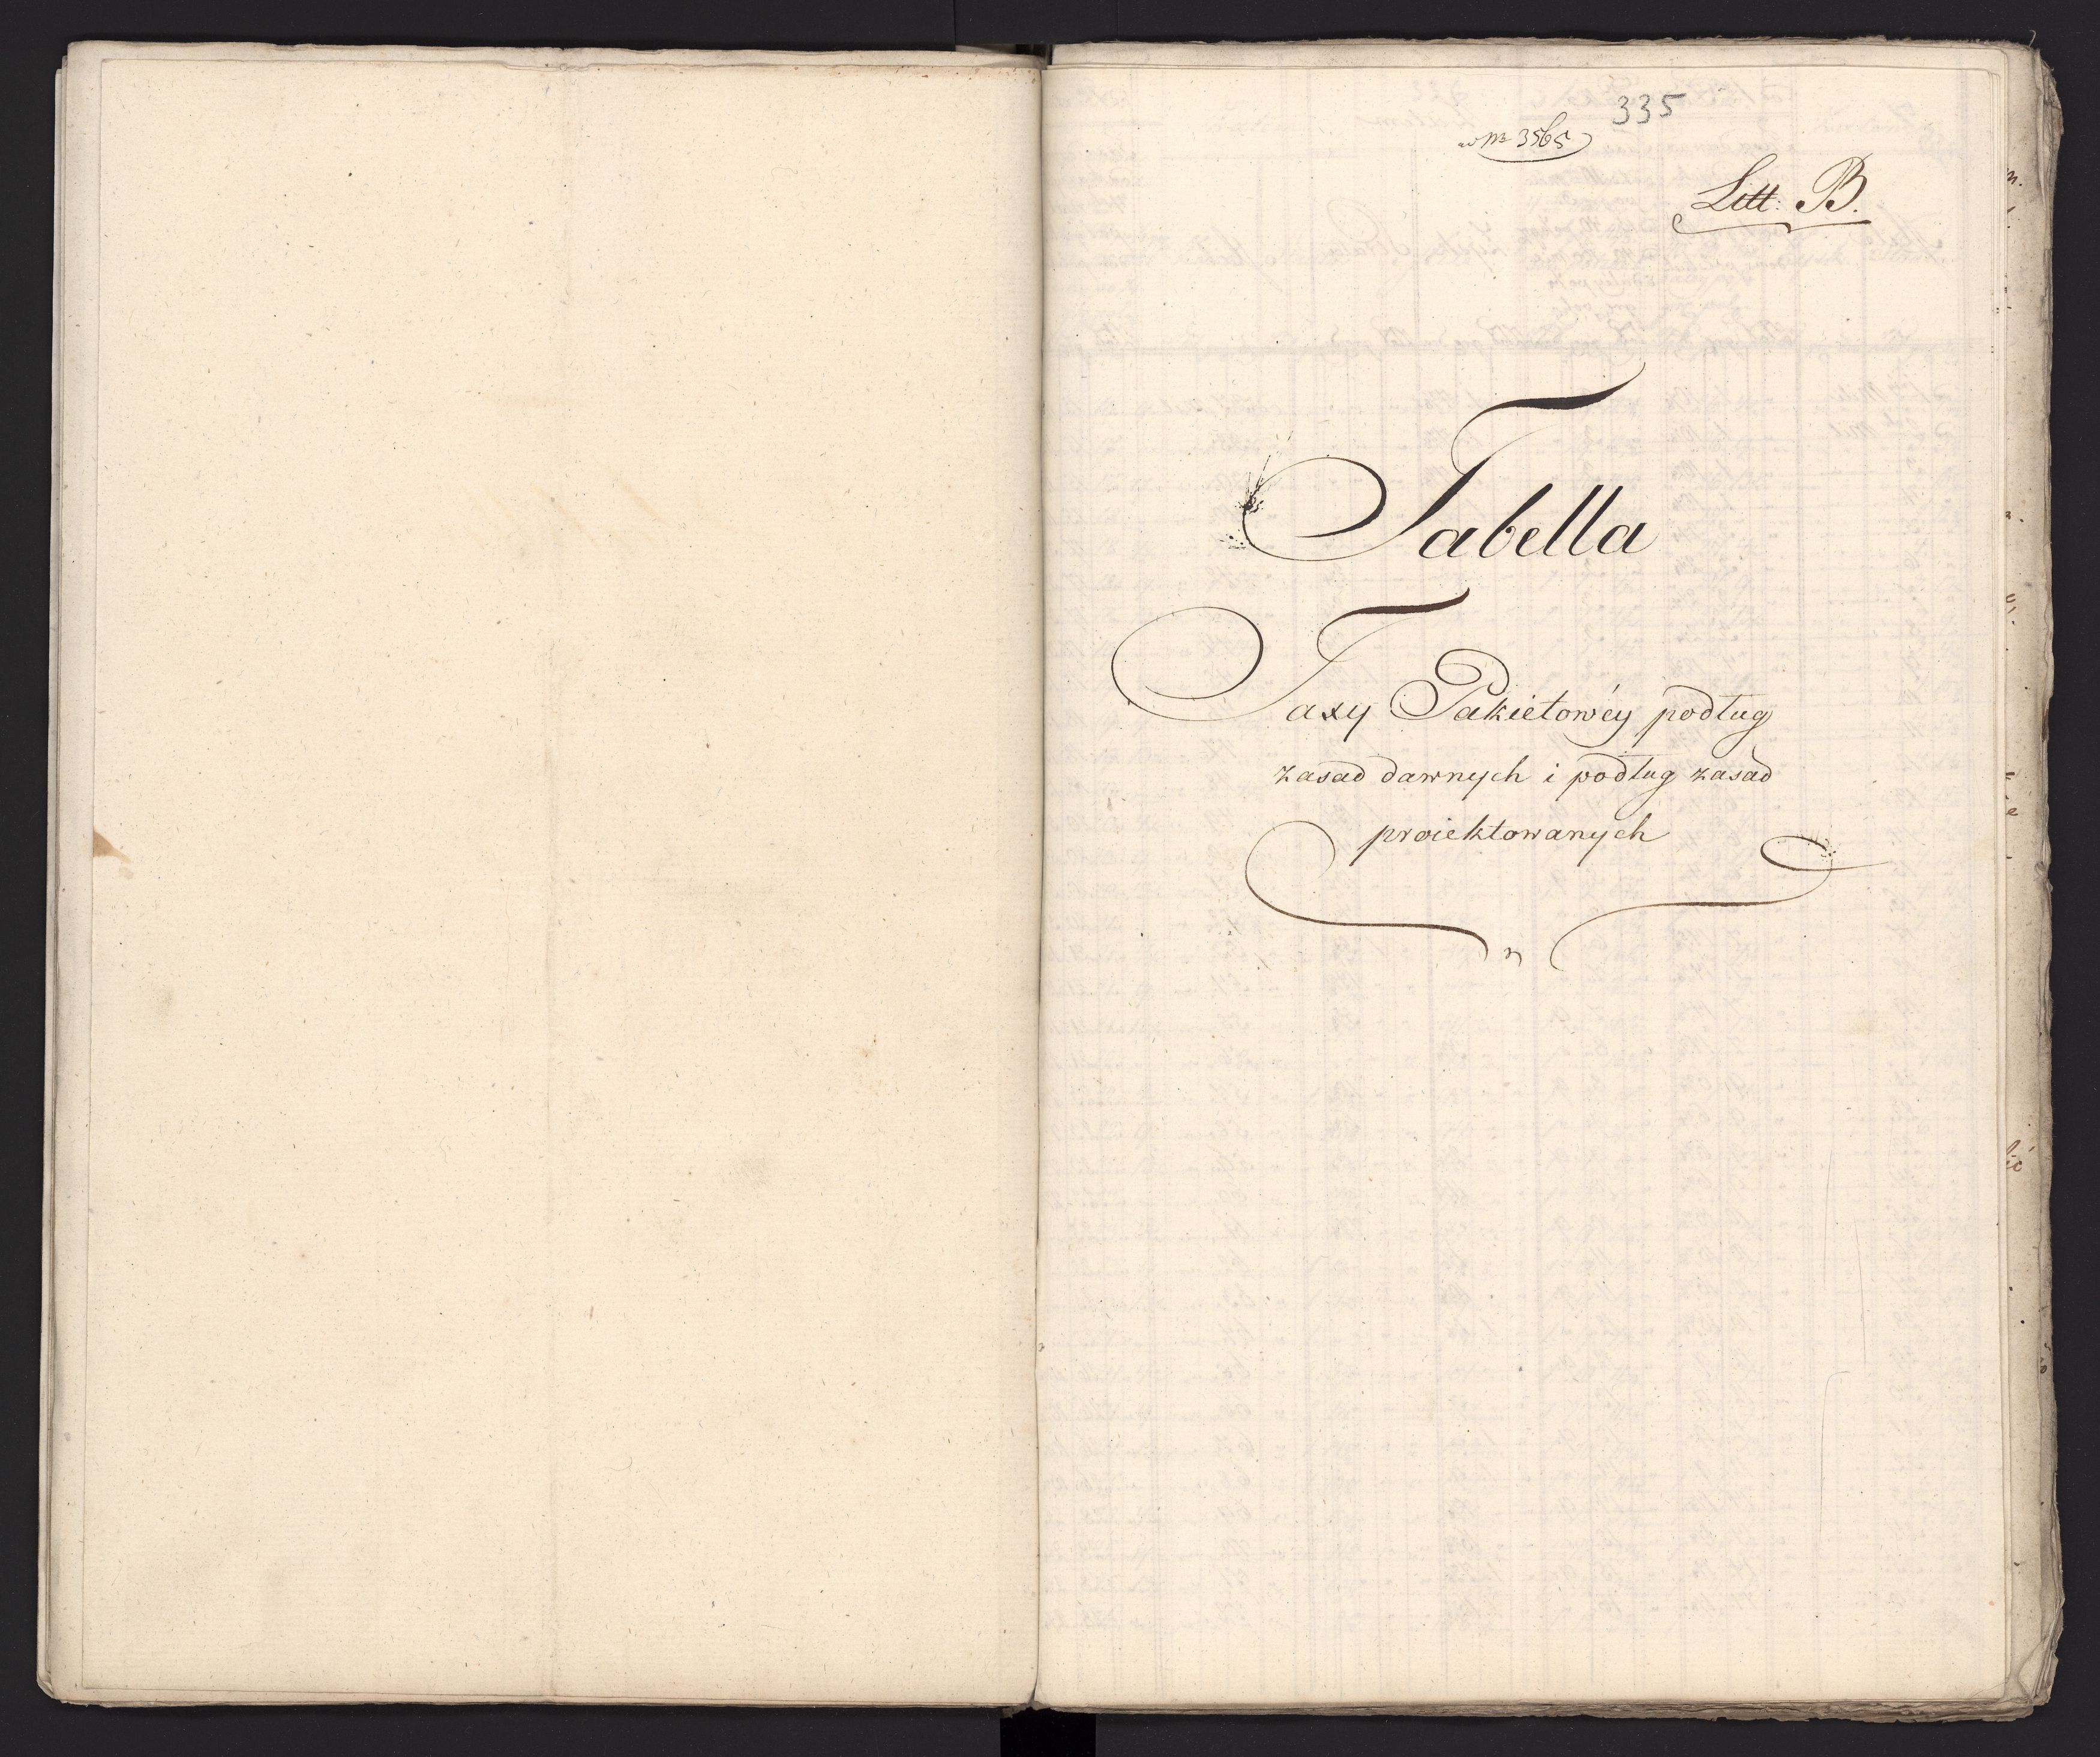 335
ad Nr 3565
Litt: B.
Tabella
Taxy Pakietowéy podług
zasad dawnych i podług zasad
proiektowanych